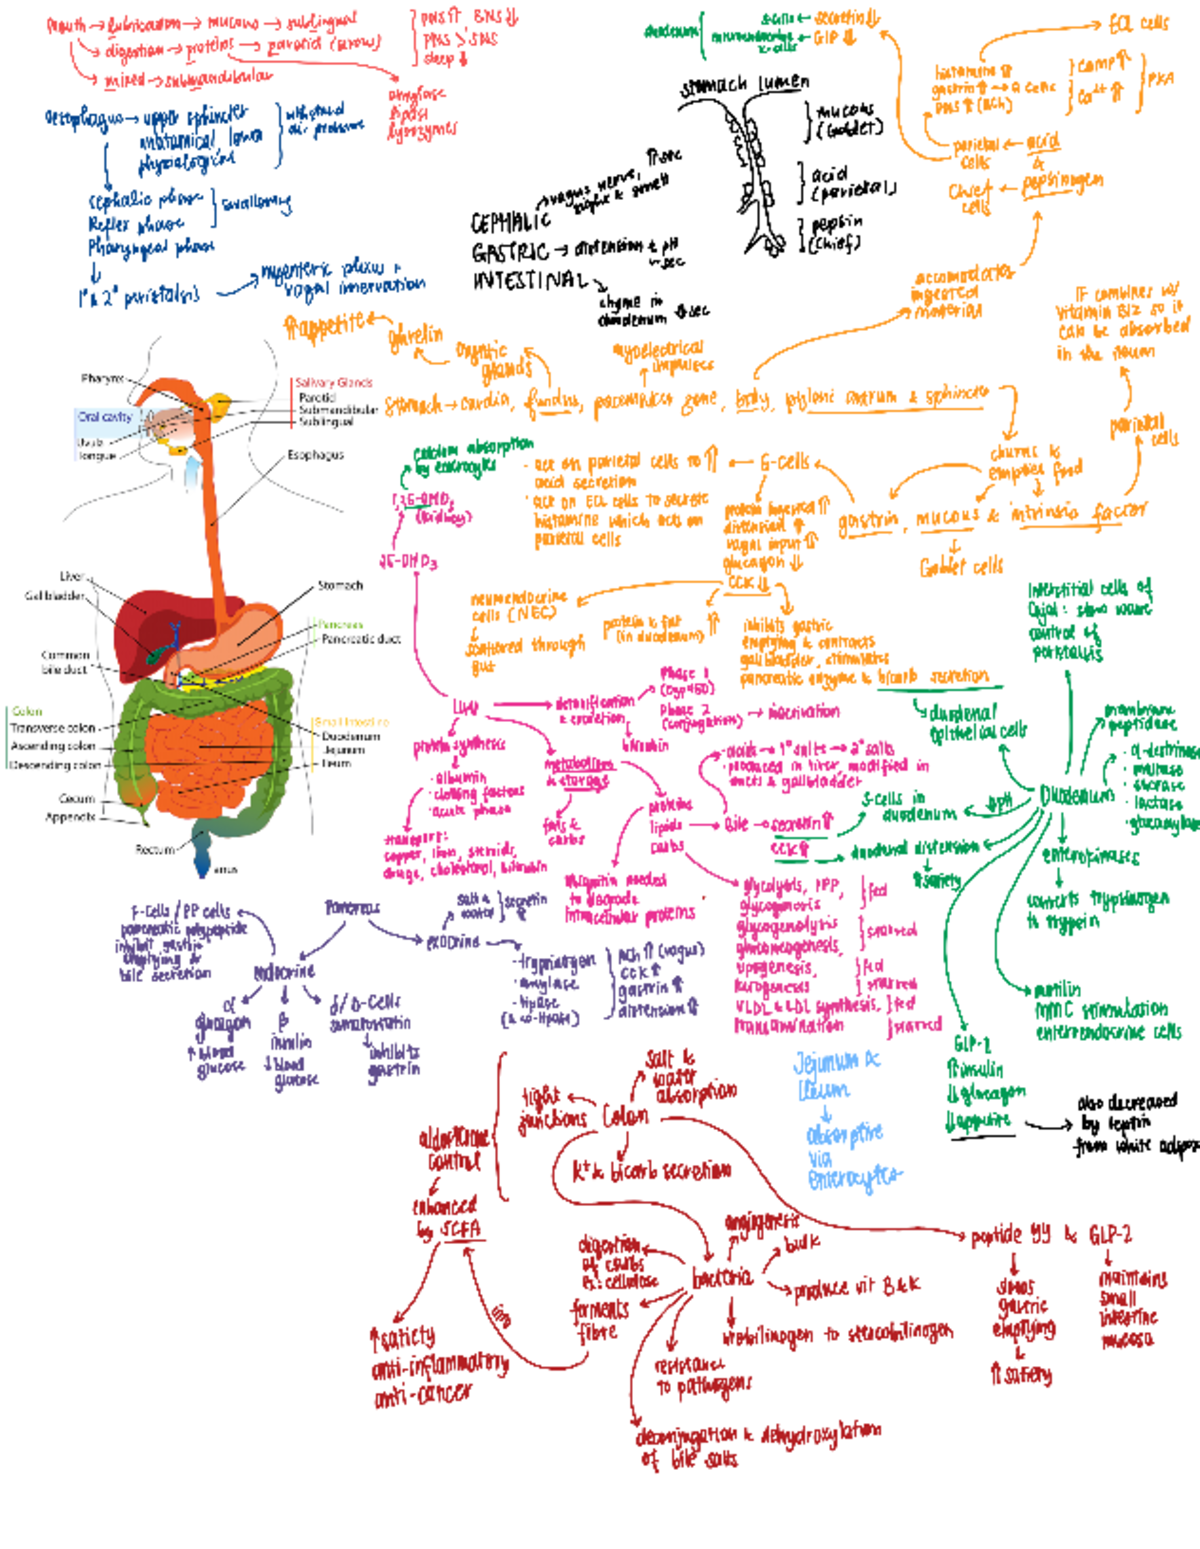 mouth → lubrication → mucous → sublingual
digestion → proteins → parotid (serous)
mixed → submandibular
PNS ⇈ SNS ⇊
PNS > SNS
sleep ↓
amylase
lipase
lysozymes
oesophagus → upper sphincter
anatomical lower
physiological
withstand
air pressure
cephalic phase
Reflex phase
Pharyngeal phase
swallowing
1° & 2° peristalsis
myenteric plexus +
vagal innervation
duodenum
S-cells ← secretin ⇊
GIP ⇊
stomach lumen
mucous
(Goblet)
acid
(parietal)
pepsin
(chief)
CEPHALIC
vagus nerve, ⇈ sec
sight & smell
GASTRIC → distension & pH
INTESTINAL
chyme in
duodenum ⇊ sec
ECL cells
histamine ⇈
gastrin ⇈ → G cells
PNS ⇈ (ACh)
cAMP ⇈
Ca²⁺ ⇈
PKA
parietal ← acid
cells &
Chief ← pepsinogen
cells
accomodates
ingested
material
IF combines w/
vitamin B12 so it
can be absorbed
in the ileum
parietal
cells
⇈ appetite ← ghrelin
oxyntic
glands
myoelectrical
impulses
stomach → cardia, fundus, pacemaker zone, body, pyloric antrum & sphincter
churns &
empties food
gastrin, mucous & intrinsic factor
Goblet cells
G-cells
· act on parietal cells to ⇈
acid secretion
· act on ECL cells to secrete
histamine which acts on
parietal cells
protein ingested ⇈
distension ⇈
vagal input ⇈
glucagon ⇊
CCK ⇊
neuroendocrine
cells (NEC)
scattered through
gut
protein & fat
(in duodenum) ⇈
inhibits gastric
emptying & contracts
gallbladder, stimulates
pancreatic enzyme & bicarb secretion
duodenal
epithelial cells
Pharynx
Oral cavity
Uvula
Tongue
Salivary Glands
Parotid
Submandibular
Sublingual
Esophagus
Liver
Gallbladder
Common
bile duct
Stomach
Pancreas
Pancreatic duct
Colon
Transverse colon
Ascending colon
Descending colon
Small Intestine
Duodenum
Jejunum
Ileum
Cecum
Appendix
Rectum
anus
calcium absorption
by enterocytes
(kidney)
25-OHD₃
Liver → detoxification
& excretion
Phase 1
(cyp450)
Phase 2
(conjugation) → inactivation
bilirubin
protein synthesis
· albumin
· clotting factors
· acute phase
transport:
copper, iron, steroids,
drugs, cholesterol, bilirubin
metabolism
& storage
fats &
carbs
proteins
lipids
carbs
ubiquitin needed
to degrade
intracellular proteins
Bile → secretin ⇈
CCK ⇈
· acids → 1° salts → 2° salts
· produced in liver, modified in
ducts & gallbladder
glycolysis, PPP,
glycogenesis
fed
glycogenolysis
gluconeogenesis,
starved
lipogenesis,
fed
ketogenesis
starved
VLDL & LDL synthesis,
fed
transamination
starved
Interstitial cells of
Cajal: slow wave
control of
peristalsis
Duodenum
membrane
peptidase
· α-dextrinase
· maltase
· sucrase
· lactase
· glucoamylase
⇊ pH
S-cells in
duodenum
duodenal distension
⇈ satiety
enterokinases
converts trypsinogen
to trypsin
motilin
MMC stimulation
enteroendocrine cells
GLP-2
⇈ insulin
⇊ glucagon
⇊ appetite
also decreased
by leptin
from white adipose
Pancreas
F-Cells / PP cells
pancreatic polypeptide
inhibit gastric
emptying &
bile secretion
endocrine
α
glucagon
↑ blood
glucose
β
insulin
↓ blood
glucose
δ / D-Cells
somatostatin
inhibits
gastrin
exocrine
secretin
⇈
· trypsinogen
· amylase
· lipase
(& co-lipase)
ACh ⇈ (vagus)
CCK ⇈
gastrin ⇈
distension ⇈
Jejunum &
Ileum
absorptive
via
enterocytes
Colon
salt &
water
absorption
tight
junctions
K⁺ & bicarb secretion
aldosterone
control
enhanced
by SCFA
↑ satiety
anti-inflammatory
anti-cancer
bacteria
angiogenesis
bulk
produce vit B & K
urobilinogen to stercobilinogen
digestion
of carbs
Ex: cellulose
ferments
fibre
into
resistance
to pathogens
deconjugation & dehydroxylation
of bile salts
peptide YY & GLP-2
slows
gastric
emptying
&
⇈ satiety
maintains
small
intestine
mucosa